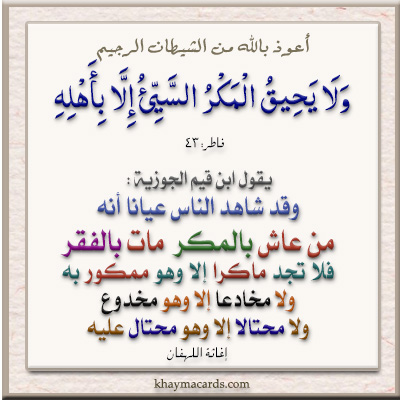 أعوذ بالله من الشيطان الرجيم
وَلَا يَحِيقُ الْمَكْرُ السَّيِّئُ إِلَّا بِأَهْلِهِ
فاطر: ٤٣
يقول ابن قيم الجوزية :
وقد شاهد الناس عيانا أنه
من عاش بالمكر مات بالفقر
فلا تجد ماكرا إلا وهو ممكور به
ولا مخادعا إلا وهو مخدوع
ولا محتالا إلا وهو محتال عليه
إغاثة اللهفان
khaymacards.com